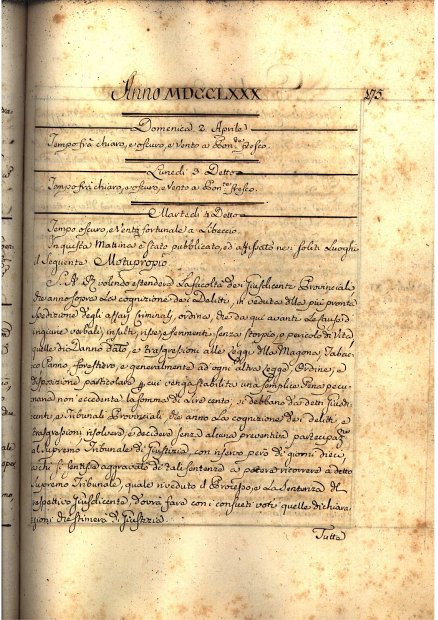 Anno MDCCLXXX
175
Domenica 2. Aprile
Tempo frà chiaro, e oscuro, e vento a fresco.
Lunedì 3 Detto
Tempo frà chiaro, e oscuro, e vento a fresco.
Martedì 4 Detto
Tempo oscuro, e Vento fortunale a Libeccio.
In questa Mattina è stato pubblicato, ed affissato nei soliti Luoghi
il Seguente Motuproprio
S. A. R. volendo estendere la facoltà dei Giusdicenti Provinciali
che anno sopra la cognizione dei Delitti, in veduta della più pronta
spedizione degli affari criminali, ordina, che da qui avanti le Cause d'
ingiurie verbali, insulti, risse, e ferimenti senza storpio, o pericolo di Vita
quelle di Danno dato, e trasgressioni alle Leggi della Magona, Tabac-
co Panno forestiero, e generalmente ad ogni altra Legge, Ordine, e
disposizione particolare cui venga stabilita una semplice Pena pecu-
naria non eccedente la somma di Lire cento, si debbano dai detti Giusdi-
centi, e Tribunali Provinciali che anno la cognizione dei delitti, e
trasgressioni risolvere, e decidere senza alcuna preventiva
al Supremo Tribunale di Giustizia, con riservo però di giorni dieci,
a chi si sentisse aggravato di tali sentenze a potere ricorrere a detto
Supremo Tribunale, quale riveduto il Processo, e la Sentenza del
respettivo Giusdicente dovrà fare con i consueti voti quelle dichiara-
zioni che stimerà di Giustizia
Tutte